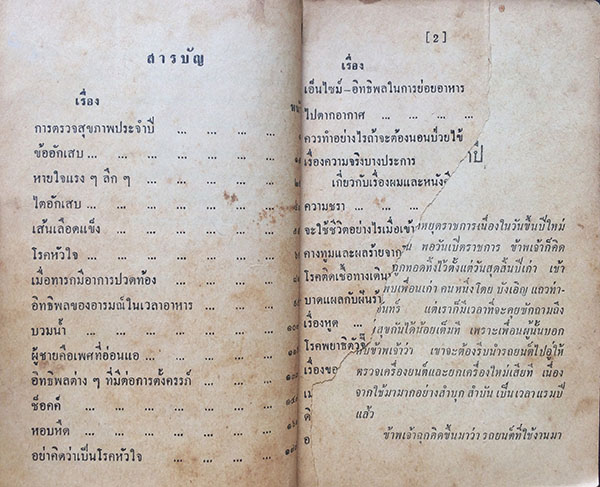 สารบัญ
เรื่อง
การตรวจสุขภาพประจำปี ... ... ...
ข้ออักเสบ ... ... ... ... ...
หายใจแรง ๆ ลึก ๆ ... ... ... ...
ไตอักเสบ ... ... ... ...
เส้นเลือดแข็ง ... ... ... ...
โรคหัวใจ ... ... ... ...
เมื่อทารกมีอาการปวดท้อง ... ...
อิทธิพลของอารมณ์ในเวลาอาหาร ... ...
บวมน้ำ ... ... ... ... ...
ผู้ชายคือเพศที่อ่อนแอ ... ... ...
อิทธิพลต่าง ๆ ที่มีต่อการตั้งครรภ์ ...
ช็อคค์ ... ... ... ... ...
หอบหืด ... ... ... ...
อย่าคิดว่าเป็นโรคหัวใจ ... ... ...
[2]
เรื่อง
เอ็นไซม์–อิทธิพลในการย่อยอาหาร
ไปตากอากาศ ... ... ...
ควรทำอย่างไรถ้าจะต้องนอนป่วยไข้
เรื่องความจริงบางประการ
เกี่ยวกับเรื่องผมและหนังศี
ความชรา ... ... ...
จะใช้ชีวิตอย่างไรเมื่อเข้า
คางทูมและผลร้ายจาก
โรคติดเชื้อทางเดิน
บาดแผลกับผีนร้า
เรื่องหูด ...
โรคพยาธิตัวจี๊
เรื่องขอ
เ
ดิ
อ
าปี
าหยุดราชการเนื่องในวันขึ้นปีใหม่
น พอวันเปิดราชการ ข้าพเจ้าก็คิด
ถูกทอดทิ้งไว้ตั้งแต่วันสุดสิ้นปีเก่า เข้า
พบเพื่อนเก่า คนหนึ่งโดย บังเอิญ แถวท่า-
ันทร์ แต่เราก็มีเวลาที่จะคุยซักถามถึง
สุขกันได้น้อยเต็มที เพราะเพื่อนผู้นั้นบอก
กับข้าพเจ้าว่า เขาจะต้องรีบนำรถยนต์ไปอู่ให้
ตรวจเครื่องยนต์และยกเครื่องใหม่เสียที เนื่อง
จากใช้มามากอย่างสำบุก สำบัน เป็นเวลาแรมปี
แล้ว
ข้าพเจ้าฉุกคิดขึ้นมาว่า รถยนต์ที่ใช้งานมา